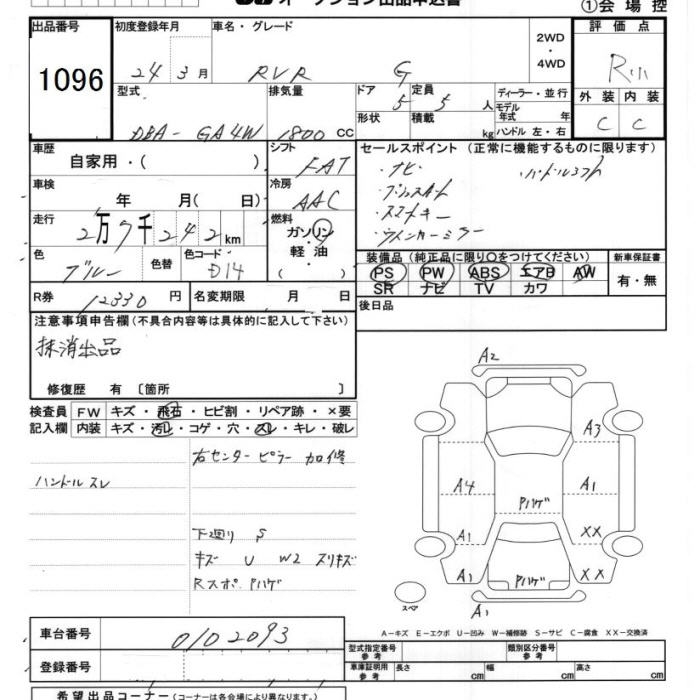 オークション出品申込書
①会場控
出品番号
1096
初度登録年月
24 3月
車名・グレード
RVR G
2WD
・
4WD
評価点
R
外装 内装
C C
型式
DBA-GA4W
排気量
1800 CC
ドア
5
定員
5 人
形状
積載
kg
ディーラー・並行
モデル年式 年
ハンドル 左・右
車歴
自家用・( )
シフト
FAT
車検
年 月( 日)
冷房
AAC
走行
2万7千242km
燃料
ガソリン
軽油
( )
色
ブルー
色替
色コード
D14
R券
12330 円
名変期限 月 日
セールスポイント (正常に機能するものに限ります)
・ナビ ・ハンドルシフト
・プッシュスタート
・スマートキー
・ウインカーミラー
装備品(純正品に限り○をつけてください)
PS PW ABS エアB AW
SR ナビ TV カワ
新車保証書
有・無
後日品
注意事項申告欄(不具合内容等は具体的に記入して下さい)
抹消出品
修復歴 有〔箇所 〕
検査員記入欄
FW キズ・飛石・ヒビ割・リペア跡・×要
内装 キズ・汚レ・コゲ・穴・スレ・キレ・破レ
右センターピラー 加修
ハンドルスレ
下廻り S
キズ U W2 スリキズ
Rスポ Pハゲ
A2
A3
A4
A1
Pハゲ
A1
XX
A1
Pハゲ
XX
A1
スペア
A-キズ E-エクボ U-凹み W-補修跡 S-サビ C-腐食 XX-交換済
車台番号
0102093
登録番号
型式指定番号
参考
類別区分番号
参考
車庫証明用
参考
長さ cm
幅 cm
高さ cm
希望出品コーナー(コーナーは各会場により異なります。)